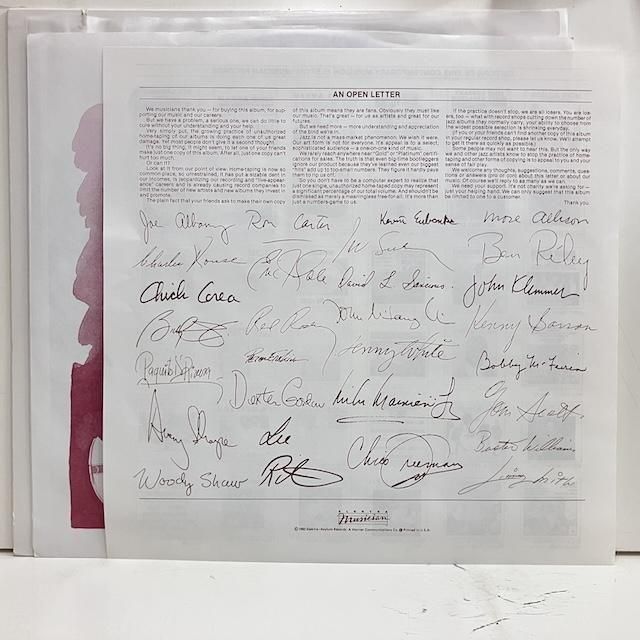 AN OPEN LETTER
We musicians thank you — for buying this album, for sup-
porting our music and our careers.
But we have a problem, a serious one, we can do little to
cure without your understanding and your help.
Very simply put, the growing practice of unauthorized
home-taping of our albums is doing each one of us great
damage. Yet most people don't give it a second thought.
It's no big thing, it might seem, to let one of your friends
make just one copy of this album. After all, just one copy can't
hurt too much.
Or can it?
Look at it from our point of view. Home-taping is now so
common place, so unrestrained, it has a stable dent in
our incomes, is jeopardizing our recording and "live-appear-
ance" careers and is already causing record companies to
limit the number of new artists and new albums they invest in
and promote.
The plain fact that your friends ask to make their own copy
of this album means they are fans. Obviously they must like
our music. That's great — for us as artists and great for our
futures.
But we need more — more understanding and appreciation
of the bind we're in.
Jazz is not a mass-market phenomenon. We wish it were.
Our art form is not for everyone. It's appeal is to a select,
sophisticated audience — a one-on-one kind of music.
We rarely reach anywhere near "Gold" or "Platinum" certifi-
cations for sales. The truth is that even big-time bootleggers
ignore our product because they've learned even our biggest
"hits" add up to too-small numbers. They figure it hardly pays
them to rip us off.
So you don't have to be a computer expert to realize that
just one single, unauthorized home-taped copy may represent
a significant percentage of our total volume. And shouldn't be
dismissed as merely a meaningless free-for-all. It's more than
just a numbers-game to us.
If the practice doesn't stop, we are all losers. You are los-
ers, too — what with record shops cutting down the number of
jazz albums they normally carry, your ability to choose from
the widest possible selection is shrinking everyday.
(If you or your friends can't find another copy of this album
in your regular record shop, please let us know. We'll arrange
to get it there as quickly as possible.)
Some people may not want to help this way. But the only way
we and other artists know to stop the practice of home-
taping and other forms of cutting is to appeal to you and your
sense of fair play.
We welcome any thoughts, suggestions, comments, ques-
tions or answers (pro or con) about this letter or about our
music. Of course we'll reply to as many as we can.
We need your support. It's not charity we're asking for —
just your helping hand. We can only suggest that this album
be limited to one to a customer.
Thank you.
Joe Albany Ron Carter Kevin Eubanks Mose Allison
Charlie Rouse David L. Ben Riley
Chick Corea John Klemmer
Red Kenny Barron
Lenny White
Bobby McFerrin
Dexter Gordon Mike Mainieri Jr Tom Scott
Lee Chico Freeman Buster Williams
Woody Shaw Rit Jimmy Smith
ELEKTRA
Musician
© 1982 Elektra/Asylum Records A Warner Communications Co. Printed in U.S.A.